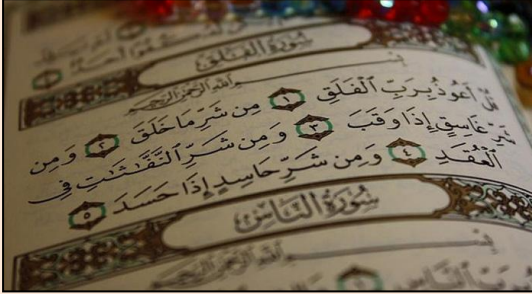 سُورَةُ الفَلَقِ
بِسْمِ اللَّهِ الرَّحْمَٰنِ الرَّحِيمِ
قُلْ أَعُوذُ بِرَبِّ ٱلْفَلَقِ ١ مِن شَرِّ مَا خَلَقَ ٢ وَمِن
شَرِّ غَاسِقٍ إِذَا وَقَبَ ٣ وَمِن شَرِّ ٱلنَّفَّٰثَٰتِ فِى
ٱلْعُقَدِ ٤ وَمِن شَرِّ حَاسِدٍ إِذَا حَسَدَ ٥
سُورَةُ النَّاسِ
بِسْمِ اللَّهِ الرَّحْمَٰنِ الرَّحِيمِ